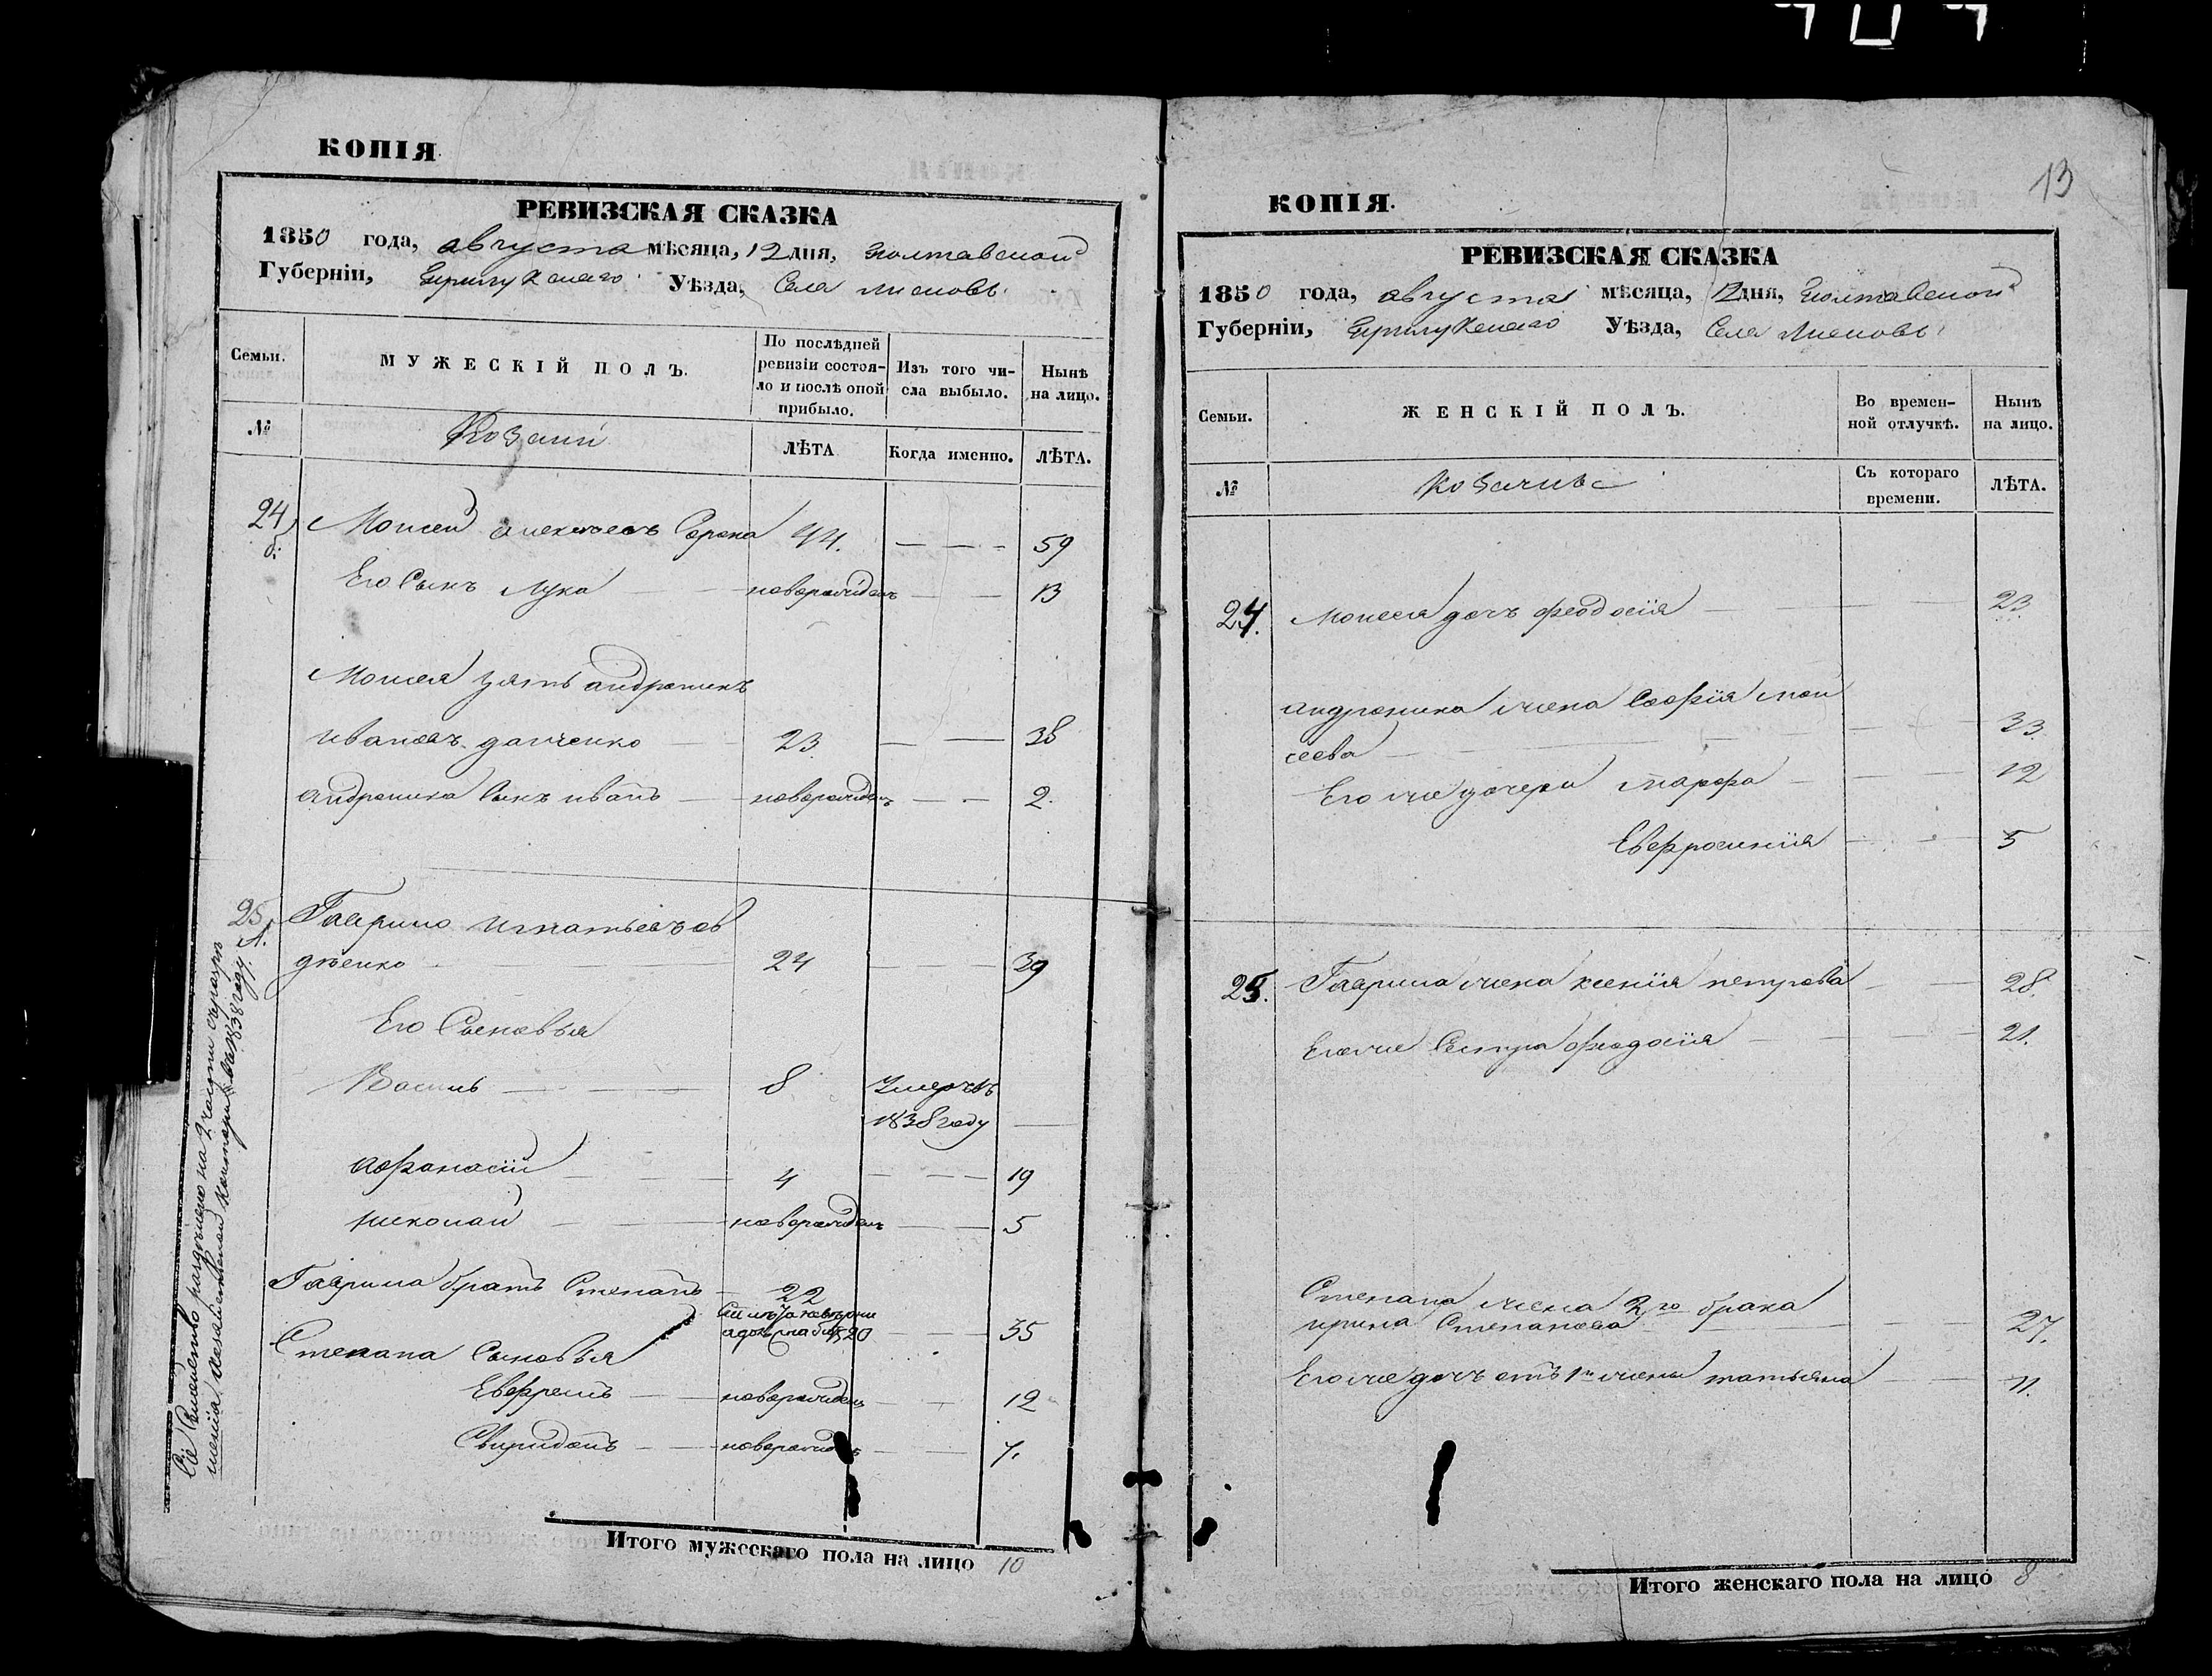 КОПІЯ
РЕВИЗСКАЯ СКАЗКА
1850 года, августа мѣсяца, 12 дня, Полтавской
Губерніи, Прилукскаго Уѣзда, Села
Семьи.
МУЖЕСКІЙ ПОЛЪ.
По послѣдней ревизіи состоя-
ло и послѣ оной прибыло.
Изъ того чи-
сла выбыло.
Нынѣ
на лицо.
№
Козаки
ЛѢТА
Когда именно.
ЛѢТА.
24 Моисей Алексѣевъ Сорока 44. — — — 59
б:
Его Сынъ Лука — — новорожденъ — — 13
Моисея зять андроникъ
ивановъ данченко — 23 — — 38
андроника Сынъ иванъ — новорожденъ — — 2.
25 Гаврило игнатьевъ ов
А.
дѣенко — 24 — — 39
Его Сыновья
Василь — — 8 Умеръ въ
1838 году —
афанасій — — — 4 — — — 19
николай — — — новорожденъ — — 5
Гаврила братъ Степанъ — 22
— — 35
Степана Сыновья
Евфремъ — — новорожденъ — — 12
Свиридонъ — — новорожденъ — — 7.
Сіе Семейство раздѣлено на 2 части
1838 году.
Итого мужескаго пола на лицо 10
13
КОПІЯ.
РЕВИЗСКАЯ СКАЗКА
1850 года, августа мѣсяца, 12 дня, Полтавской
Губерніи, Прилукскаго Уѣзда, Села
Семьи.
ЖЕНСКІЙ ПОЛЪ.
Во времен-
ной отлучкѣ.
Нынѣ
на лицо.
№
Съ котораго
времени.
ЛѢТА.
24. Моисея дочъ феодосія — — — 23.
андроника жена Софія мои
сеева — — — 33.
Его же дочери марфа — — — 12
Евфросинія — — — 5
25. Гаврила жена ксенія петрова — — 28.
Его же Сестра феодосія — — — 21.
Степана жена 2го брака
ирина Степанова — — — 27.
Его же дочъ отъ 1й жены татьяна — — 11.
Итого женскаго пола на лицо 8